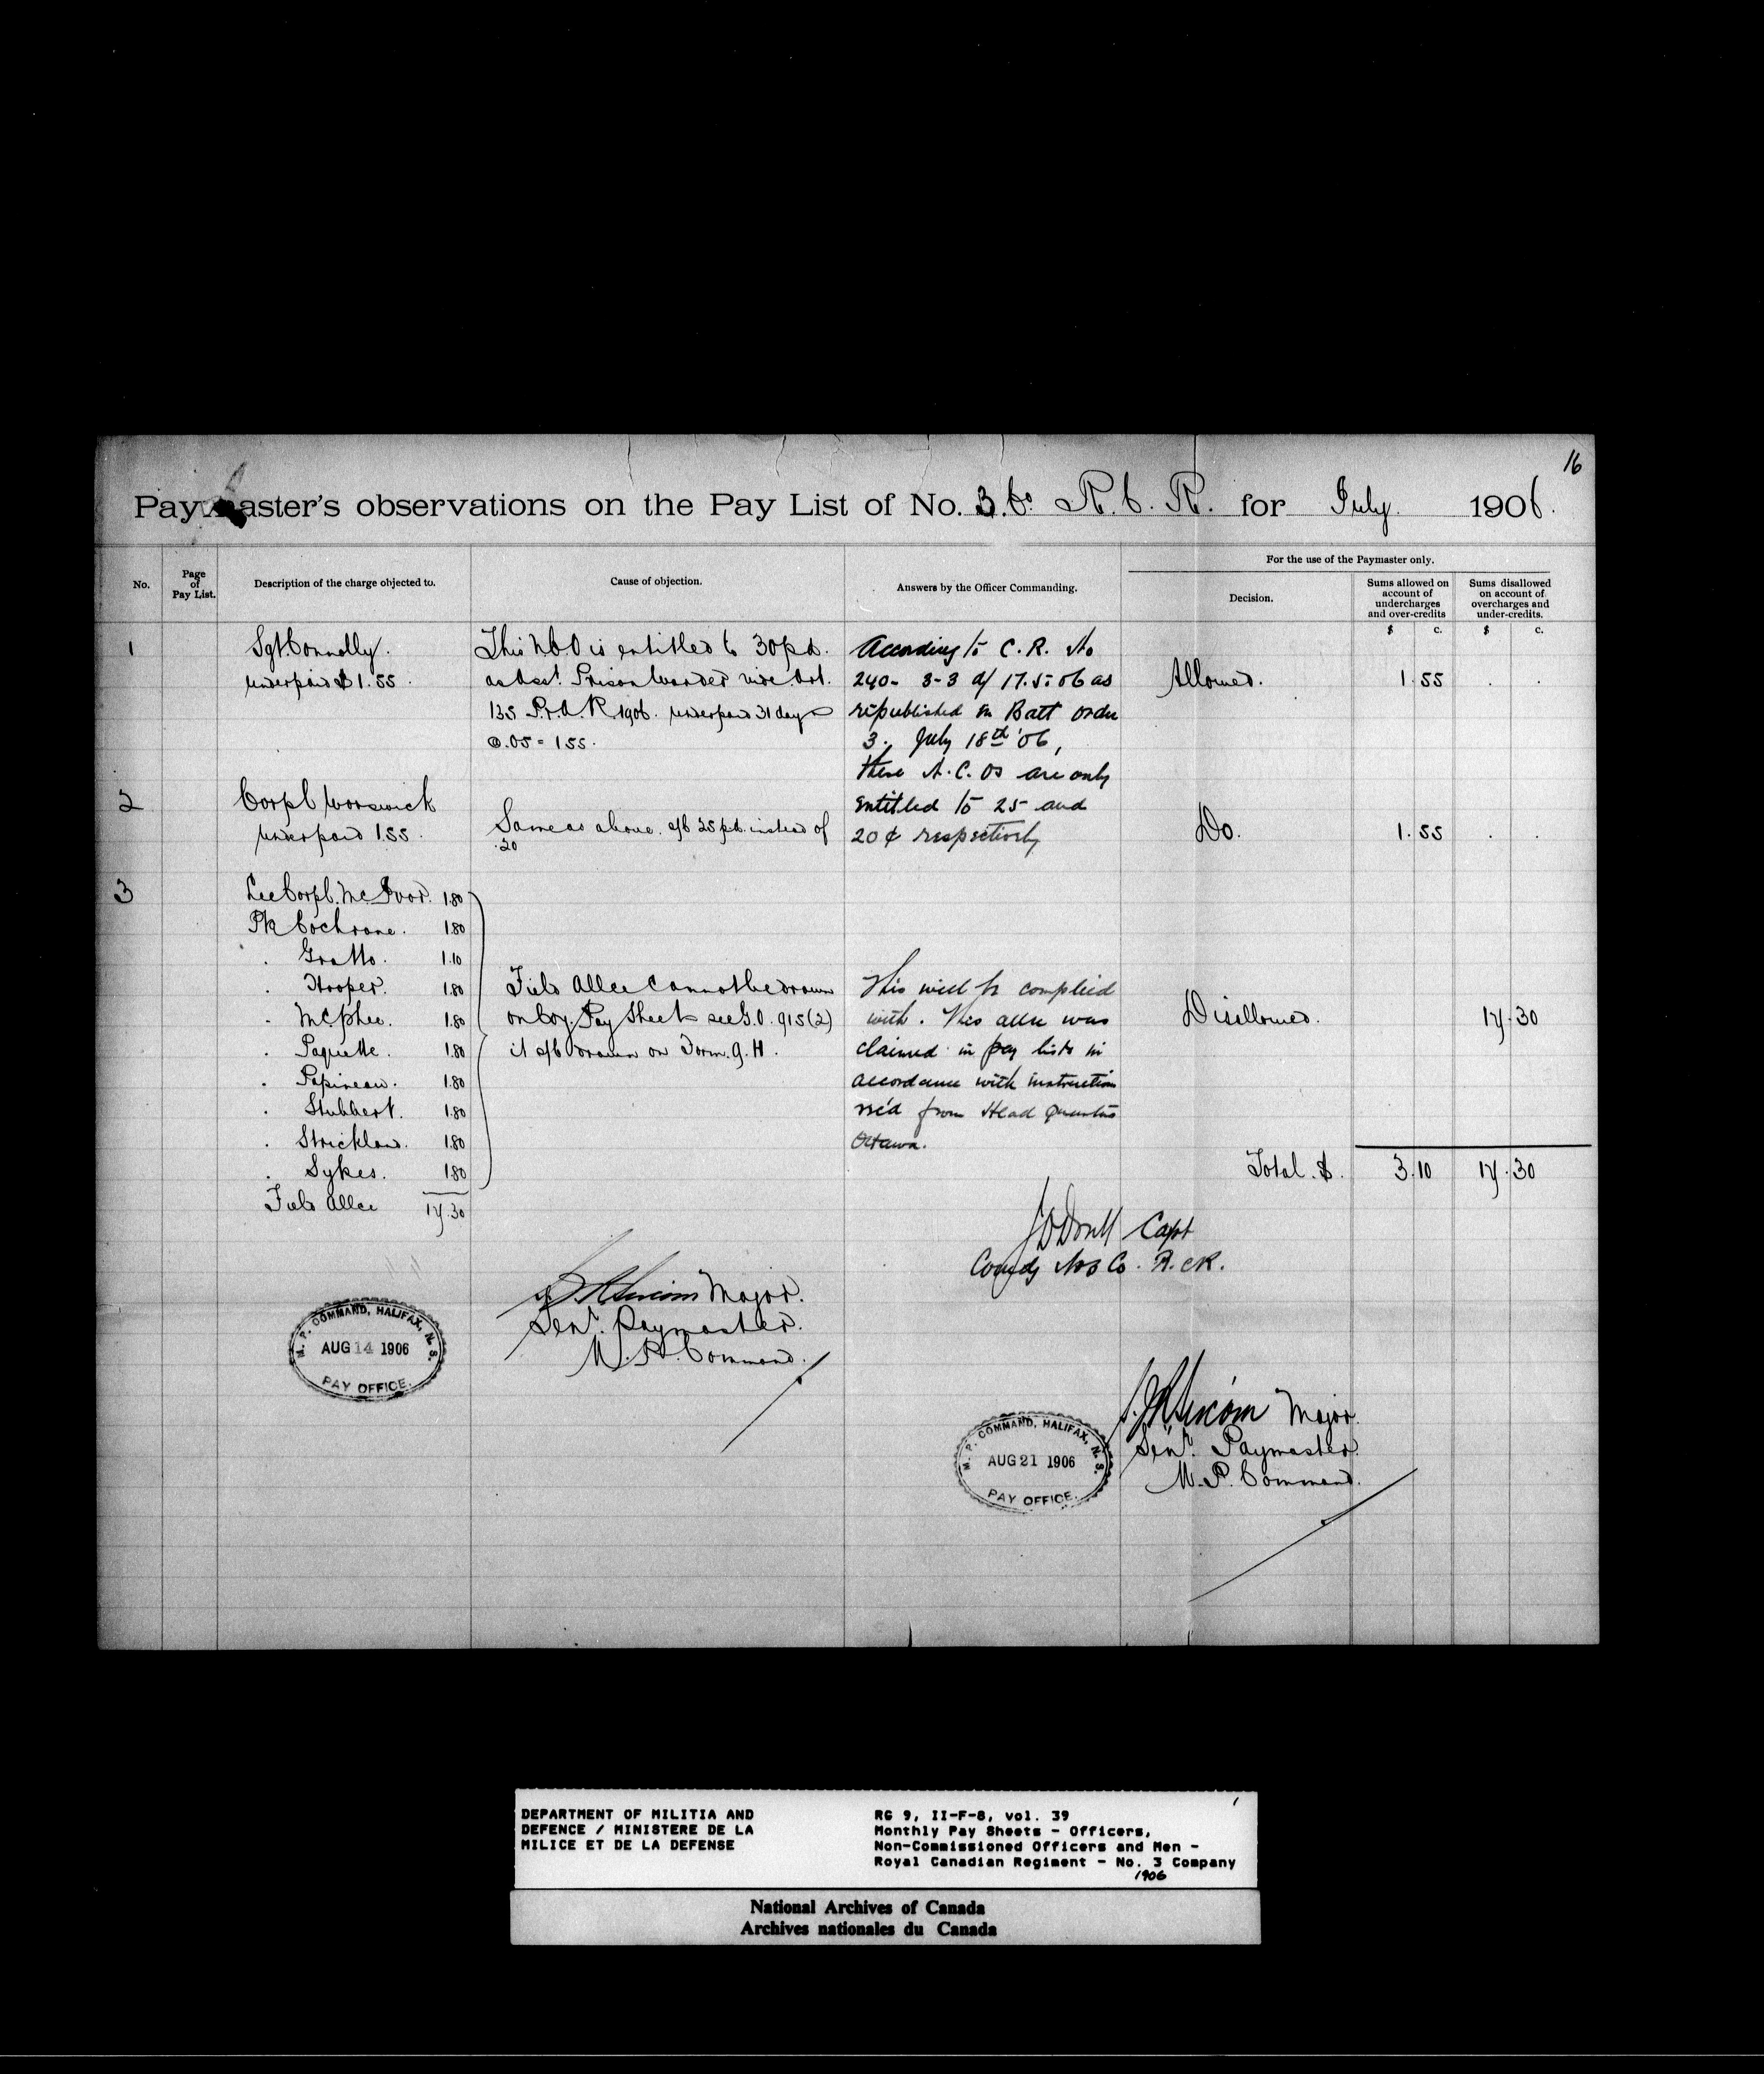 16
Paymaster's observations on the Pay List of No. 3 Co. R. C. R. for July 1906.
No.
Page of Pay List.
Description of the charge objected to.
Cause of objection.
Answers by the Officer Commanding.
For the use of the Paymaster only.
Decision.
Sums allowed on account of undercharges and over-credits
Sums disallowed on account of overcharges and under-credits.
$ c. $ c.
1
Sgt Connolly.
underpaid $1.55.
This NCO is entitled to 30 p.d.
as Asst. Prison Warder vide Art.
135 P.&A.R. 1906. underpaid 31 days
@ .05 = 1.55.
According to C. R. No
240- 3-3 d/ 17.5.06 as
republished in Batt order
3. July 18th '06,
these N.C.Os are only
entitled to 25 and
20 ¢ respectively
Allowed.
1.55
2
Corpl Worswick
underpaid 1.55.
Same as above. s/b 25 p.d. instead of
.20
Do.
1.55
3
Lce Corpl. McIvor. 1.80
Pte Cochrane. 1.80
. Gratto. 1.10
. Hooper. 1.80
. McPhee. 1.80
. Paquette. 1.80
. Papineau. 1.80
. Stubbert. 1.80
. Strickland. 1.80
. Sykes. 1.80
Field Allce 17.30
Field Allce cannot be drawn
on Coy. Pay Sheet see G.O. 915(2)
it s/b drawn on Form. 9. H.
This will be complied
with. This allce was
claimed in pay lists in
accordance with instruction
rec'd from Head Quarters
Ottawa.
Disallowed.
17.30
Total $. 3.10 17.30
Capt
Comdg No 3 Co. R.C.R.
Major.
Senr. Paymaster.
M. P. Command.
M. P. COMMAND, HALIFAX, N. S.
AUG 14 1906
PAY OFFICE.
Major.
Senr. Paymaster.
M. P. Command.
M. P. COMMAND, HALIFAX, N. S.
AUG 21 1906
PAY OFFICE.
DEPARTMENT OF MILITIA AND
DEFENCE / MINISTERE DE LA
MILICE ET DE LA DEFENSE
RG 9, II-F-8, vol. 39
Monthly Pay Sheets - Officers,
Non-Commissioned Officers and Men -
Royal Canadian Regiment - No. 3 Company
1906
National Archives of Canada
Archives nationales du Canada